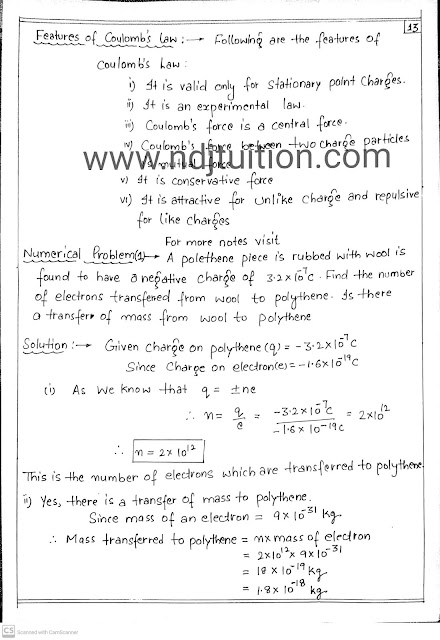 13
Features of Coulomb's Law :→ Following are the features of
Coulomb's Law :
i) It is valid only for stationary point charges.
ii) It is an experimental law.
iii) Coulomb's force is a central force.
iv) Coulomb's force between two charge particles
www.ndjtuition.com
is mutual force
v) It is conservative force
vi) It is attractive for unlike charge and repulsive
for like charges
For more notes visit
Numerical Problem(1)→ A polethene piece is rubbed with wool is
found to have a negative charge of 3.2×10⁻⁷C. Find the number
of electrons transfered from wool to polythene. Is there
a transfer of mass from wool to polythene
Solution :→ Given charge on polythene (q) = -3.2×10⁻⁷C
Since Charge on electron(e) = -1.6×10⁻¹⁹C
(i) As we know that q = ±ne
∴ n = q/e = -3.2×10⁻⁷C / -1.6×10⁻¹⁹C = 2×10¹²
∴ n = 2×10¹²
This is the number of electrons which are transferred to polythene.
ii) Yes, there is a transfer of mass to polythene.
Since mass of an electron = 9×10⁻³¹ kg
∴ Mass transferred to polythene = n×mass of electron
= 2×10¹²×9×10⁻³¹
= 18×10⁻¹⁹ kg
= 1.8×10⁻¹⁸ kg
CS Scanned with CamScanner